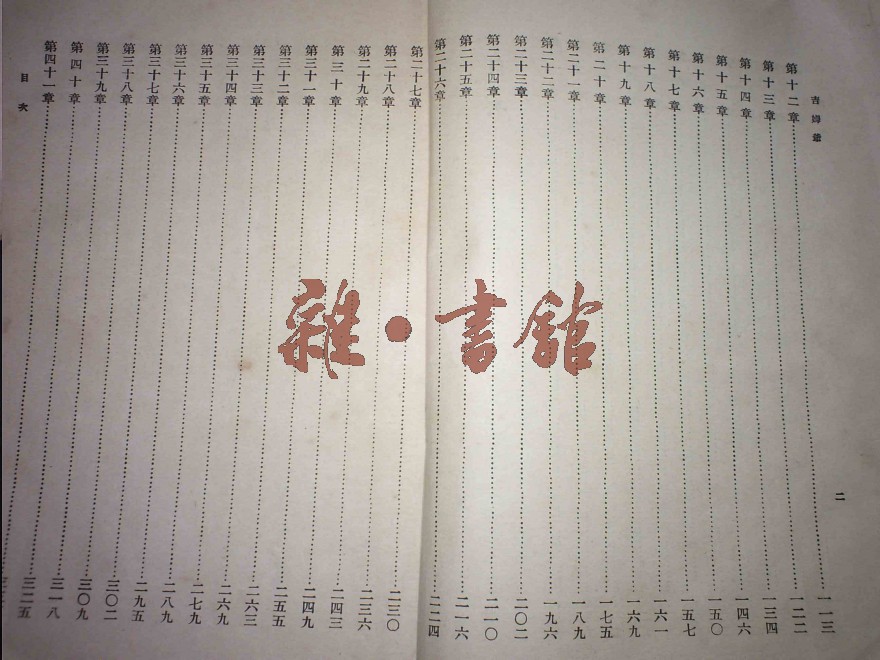 吉姆爺
二
第十二章……一一三
第十三章……一二二
第十四章……一三四
第十五章……一四六
第十六章……一五〇
第十七章……一五七
第十八章……一六一
第十九章……一六九
第二十章……一七五
第二十一章……一八九
第二十二章……一九六
第二十三章……二〇二
第二十四章……二一〇
第二十五章……二一六
第二十六章……二二四
第二十七章……二三〇
第二十八章……二三六
第二十九章……二四三
第三十章……二四九
第三十一章……二五五
第三十二章……二六三
第三十三章……二六九
第三十四章……二七九
第三十五章……二八九
第三十六章……二九五
第三十七章……三〇二
第三十八章……三〇九
第三十九章……三一八
第四十章……三二五
第四十一章……
目次
雜·書館